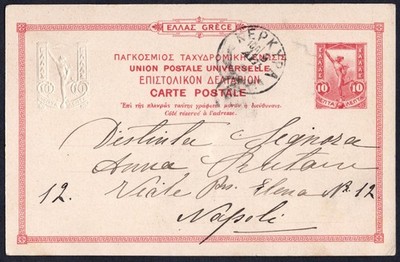 ΕΛΛΑΣ GRÈCE
ΠΑΓΚΟΣΜΙΟΣ ΤΑΧΥΔΡΟΜΙΚΗ ΕΝΩΣΙΣ
UNION POSTALE UNIVERSELLE
ΕΠΙΣΤΟΛΙΚΟΝ ΔΕΛΤΑΡΙΟΝ
CARTE POSTALE
Ἐπὶ τῆς πλευρᾶς ταύτης γράφεται μόνον ἡ διεύθυνσις.
Côté réservé à l'adresse.
ΚΕΡΚΥΡΑ
ΕΛΛΑΣ
10 10
ΛΕΠΤΑ
Distinta Signora
Anna
12. Viale Elena No. 12
Napoli